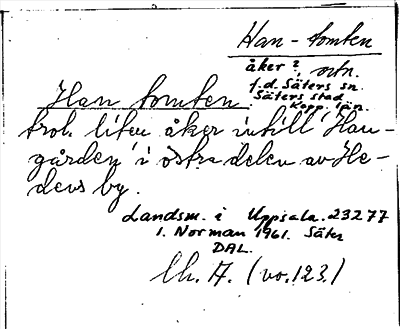 Han-tomten
åker?, ortn.
f.d. Säters sn.
Säters stad
Kopp. län.
Han tomten
trol. liten åker intill Han-
gården i östra delen av He-
dens by.
Landsm. i Uppsala. 23277
1. Norman 1961. Säter
DAL.
(vo. 123.)